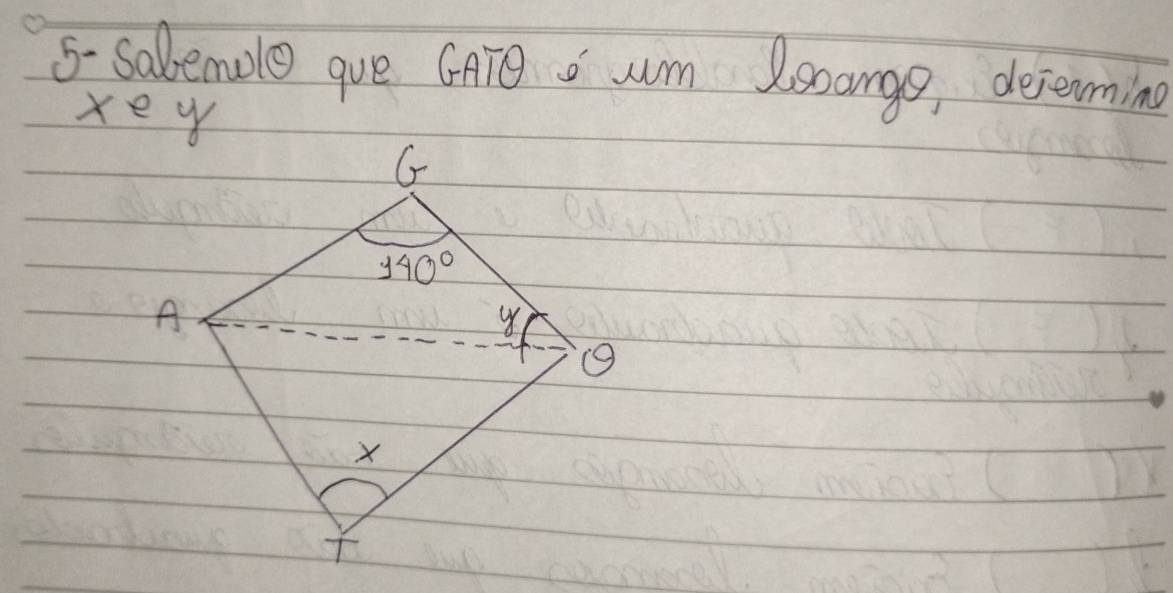 5- Sabendo que GATO é um losango, determine
x e y
G
140°
A
y
O
x
T